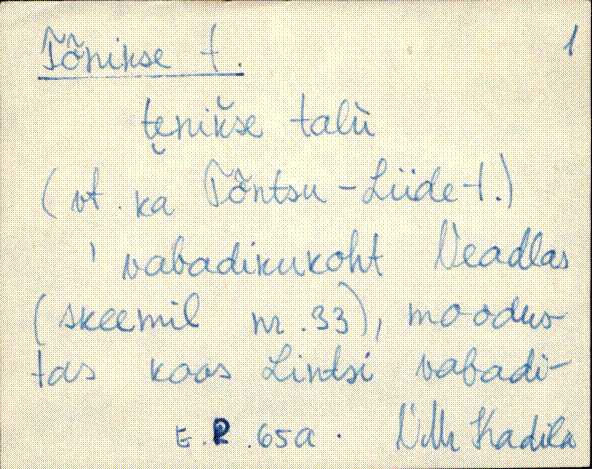 Tõnikse t. 1
tẹnikse talù
(vt. ka Tõntsu-Liide-t.)
' vabadikukoht Neadlas
(skeemil nr. 33), moodus-
tas koos Lintsi vabadi-
E.R.65a. Kadila